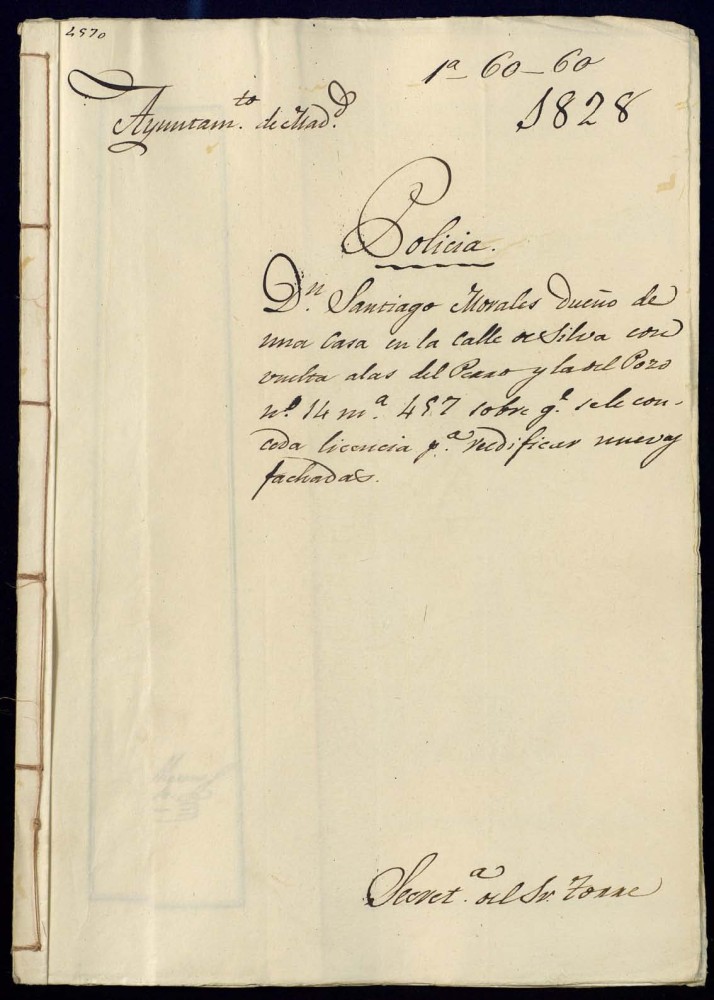 4570
1ª 60-60
Ayuntam.to de Mad.d
1828
Policia.
D.n Santiago Morales Dueño de
una Casa en la Calle de Silva con
vuelta alas del Perro y la del Pozo
n.º 14 m.ª 457 sobre q.e sele con-
ceda licencia p.ª redificar nuevas
fachadas.
Secret.ª del Sr. Torre